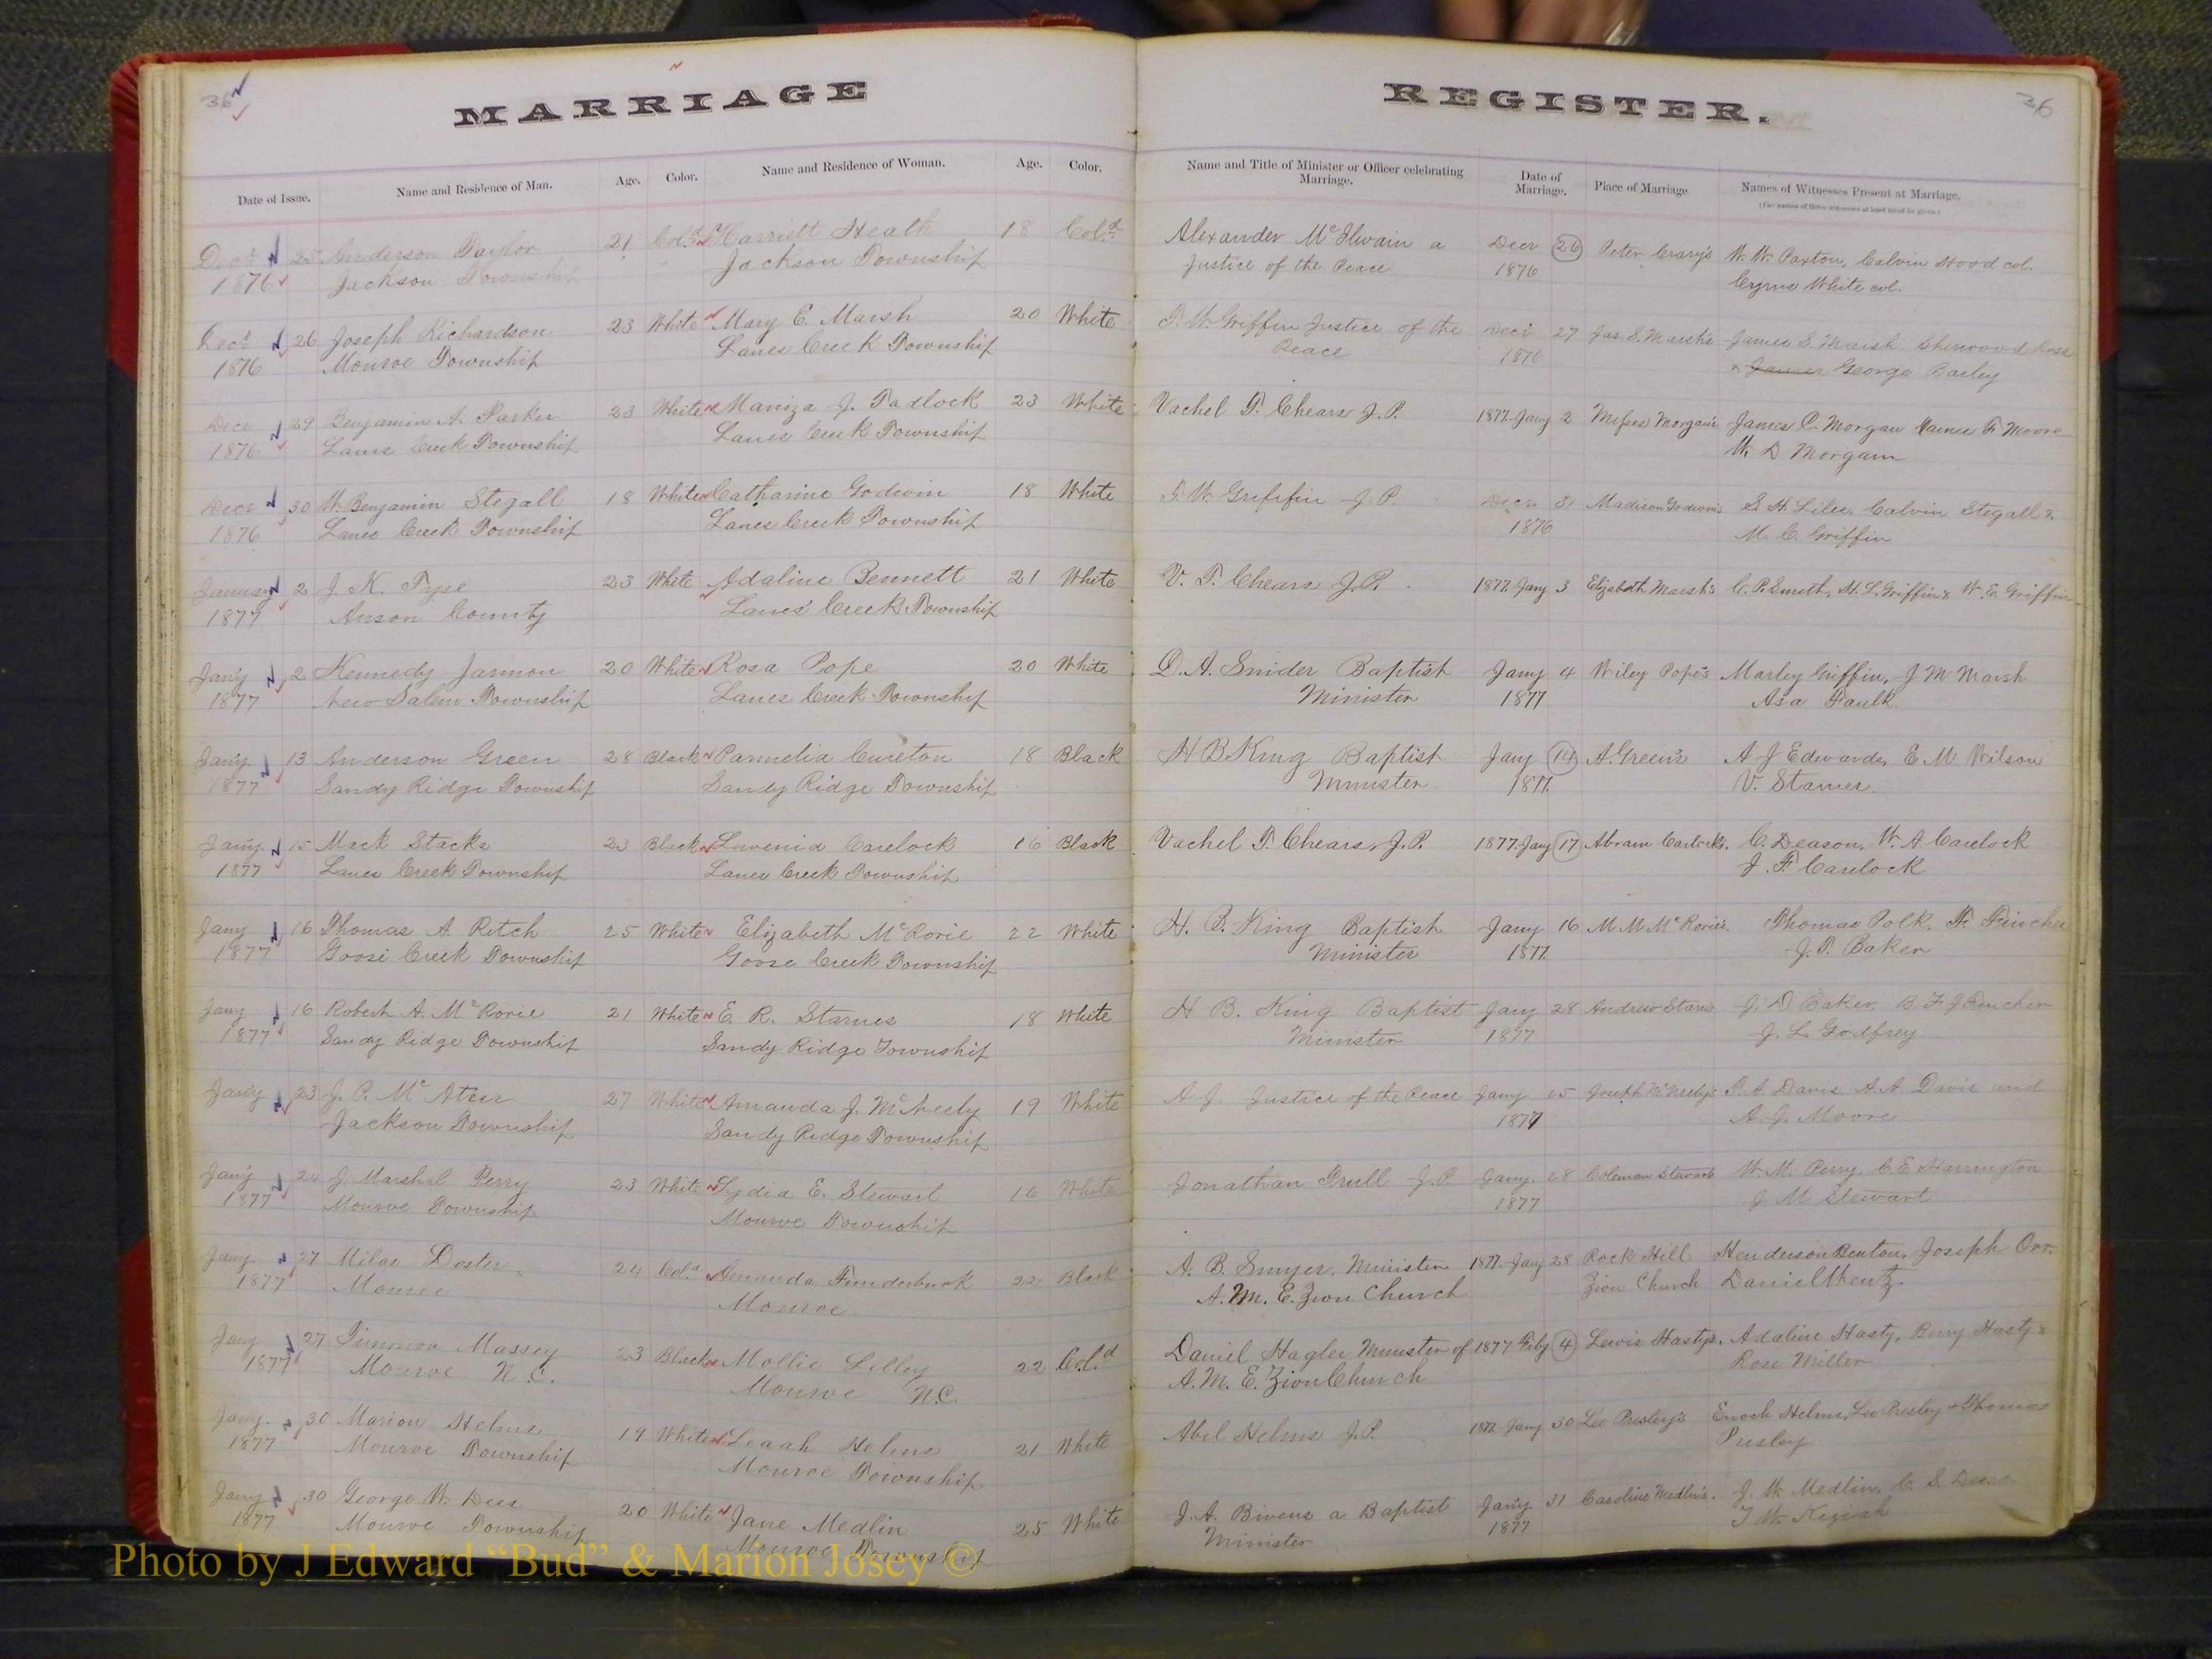 36
MARRIAGE
REGISTER.
36
Date of Issue. Name and Residence of Man. Age. Color. Name and Residence of Woman. Age. Color. Name and Title of Minister or Officer celebrating Marriage. Date of Marriage. Place of Marriage. Names of Witnesses Present at Marriage.
(The names of three witnesses at least must be given.)
Decr 25 Anderson Taylor 21 Cold Harriett Heath 18 Cold Alexander McIlwain a Decr 26 Peter Crary's W. W. Paxton, Calvin Hood col.
1876 Jackson Township Jackson Township Justice of the Peace 1876 Cyrus White col.
Decr 26 Joseph Richardson 23 White Mary E. Marsh 20 White T. W. Griffin Justice of the Decr 27 Jas. S. Marsh's James S. Marsh. Sherwood Ross
1876 Monroe Township Lanes Creek Township Peace 1876 George Bailey
Decr 29 Benjamin A. Parker 23 White Maniza J. Tadlock 23 White Vachel T. Chears J.P. 1877 Jany 2 Moses Morgan's James C. Morgan James F. Moore
1876 Lanes Creek Township Lanes Creek Township W. D Morgan
Decr 30 W. Benjamin Stegall 18 White Catharine Godwin 18 White T. W. Griffin J.P. Decr 31 Madison Godwin's S. H. Liles, Calvin Stegall &
1876 Lanes Creek Township Lanes Creek Township 1876 M. C. Griffin
January 2 J. K. Tyse 23 White Adaline Bennett 21 White V. T. Chears J.P. 1877 Jany 3 Elizabeth Marsh's C. P. Smith, H. L. Griffin & W. E. Griffin
1877 Anson County Lanes Creek Township
Jany 2 Kennedy Jarmon 20 White Rosa Pope 20 White D. A. Snider Baptist Jany 4 Wiley Pope's Marley Griffin, J M Marsh
1877 New Salem Township Lanes Creek Township Minister 1877 Asa Faulk
Jany 13 Anderson Green 28 Black Parmelia Cureton 18 Black H B King Baptist Jany 14 A. Green's A J Edwards, E. M Wilson
1877 Sandy Ridge Township Sandy Ridge Township Minister 1877 V. Starnes.
Jany 15 Mack Stacks 23 Black Luvenia Carelock 16 Black Vachel T. Chears, J.P. 1877 Jany 17 Abram Carlock's. C. Deason, W. A Carelock
1877 Lanes Creek Township Lanes Creek Township J. F. Carelock
Jany 16 Thomas A. Ritch 25 White Elizabeth McRorie 22 White H. B. King Baptist Jany 16 M M McRorie's. Thomas Polk, F. Fincher
1877 Goose Creek Township Goose Creek Township Minister 1877 J. T. Baker
Jany 16 Robert A. McRorie 21 White E. R. Starnes 18 White H B. King Baptist Jany 28 Andrew Starns J. D Baker, B. F. J Fincher
1877 Sandy Ridge Township Sandy Ridge Township Minister 1877 J. L. Godfrey
Jany 23 J. P. McAteer 27 White Amanda J. McNeely 19 White A J. Justice of the Peace Jany 25 Joseph McNeely's T. A Davis A. A Davis and
1877 Jackson Township Sandy Ridge Township 1877 A. J. Moore
Jany 24 J. Marshal Perry 23 White Lydia E. Stewart 16 White Jonathan Trull J.P Jany. 28 Coleman Stewart W. M. Perry, C E Harrington
1877 Monroe Township Monroe Township 1877 J M Stewart
Jany 27 Milas Doster 24 Cold Amanda Funderburk 22 Black A. B. Smyer, Minister 1877 Jany 28 Rock Hill Henderson Benton, Joseph Orr.
1877 Monroe Monroe A. M. E. Zion Church Zion Church Daniel Wentz.
Jany 27 Massey 23 Black Mollie Lilley 22 Cold Daniel Hagler Minister of 1877 Feby 4 Lewis Hasty's. Adaline Hasty, Berry Hasty &
1877 Monroe N.C. Monroe N.C. A. M. E. Zion Church Rose Miller
Jany 30 Marion Helms 19 White Leaah Helms 21 White Abel Helms J.P. 1877 Jany 30 Lee Presley's Enoch Helms, Lee Presley + Thomas
1877 Monroe Township Monroe Township Presley
Jany 30 George W. Dees 20 White Jane Medlin 25 White J. A. Bivens a Baptist Jany 31 Caroline Medlin's. J. W. Medlin, C. S. Dees
1877 Monroe Township Monroe Township Minister 1877 J W. Keziah
Photo by J Edward “Bud” & Marion Josey ©